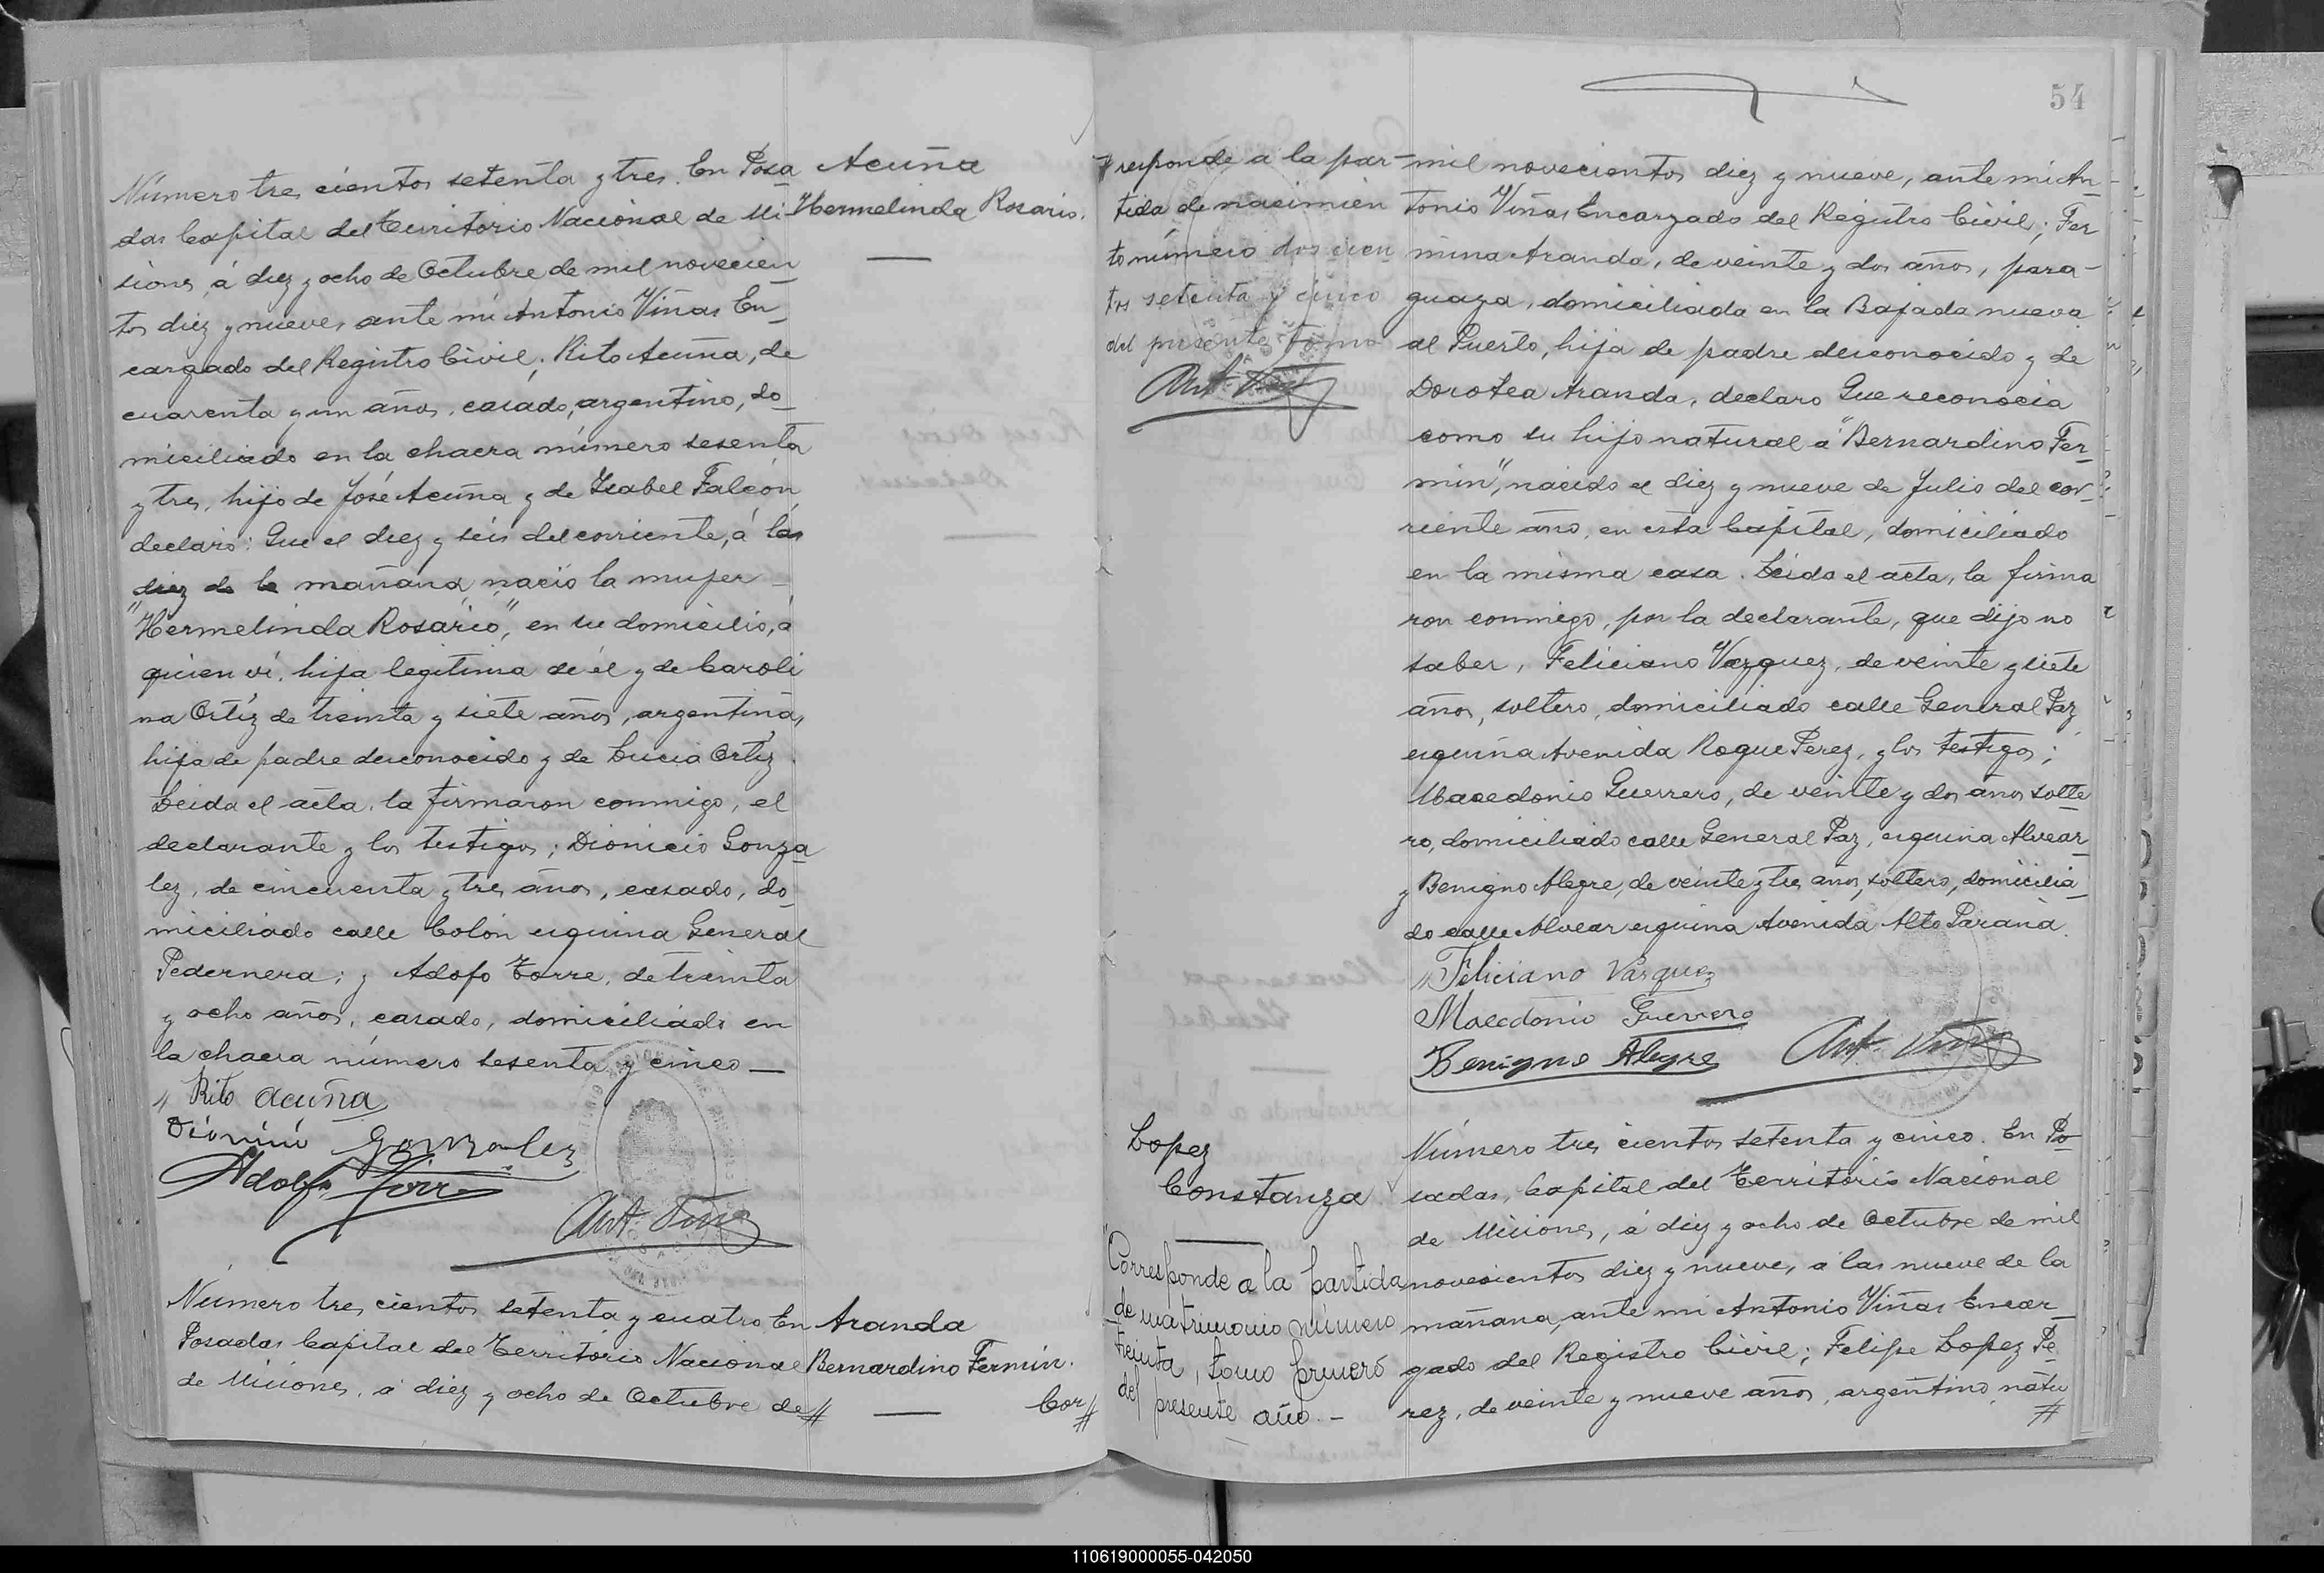 Número tres cientos setenta y tres. En Posa
das Capital del Territorio Nacional de Mi
siones, á diez y ocho de Octubre de mil novecien
tos diez y nueve, ante mí Antonio Viñas En
cargado del Registro Civil; Rito Acuña, de
cuarenta y un años, casado, argentino, do
miciliado en la chacra número sesenta
y tres, hijo de José Acuña y de Isabel Falcón
declaró: Que el diez y seis del corriente, á las
diez de la mañana, nació la mujer
"Hermelinda Rosario", en su domicilio, á
quien ví, hija legitima de él y de Caroli
na Ortíz de treinta y siete años, argentina,
hija de padre desconocido y de Lucia Ortiz.
Leida el acta, la firmaron conmigo, el
declarante y los testigos; Dionicio Gonza
lez, de cincuenta y tres años, casado, do
miciliado calle Colón esquina General
Pedernera; y Adofo Torre, de treinta
y ocho años, casado, domiciliado en
la chacra número sesenta y cinco —
" Rito Acuña
Dionicio Gonzalez
Adolfo Torre
Ant. Viñas
Acuña
Hermelinda Rosario.
Número tres cientos setenta y cuatro. En
Posadas Capital del Territorio Nacional
de Misiones, á diez y ocho de Octubre de #
Aranda
Bernardino Fermín.
Cor #
54
# responde a la par-
tida de nacimien
to número dos cien
tos setenta y cinco
del presente tomo
Ant. Viñas
mil novecientos diez y nueve, ante mi An-
tonio Viñas Encargado del Registro Civil; Fer
mina Aranda, de veinte y dos años, para-
guaya, domiciliada en la Bajada nueva
al Puerto, hija de padre desconocido y de
Dorotea Aranda, declaro Que reconocia
como su hijo natural á "Bernardino Fer-
min", nacido el diez y nueve de Julio del cor-
riente año, en esta Capital, domiciliado
en la misma casa. Leida el acta, la firma
ron conmigo, por la declarante, que dijo no
saber, Feliciano Vazquez, de veinte y siete
años, soltero, domiciliado calle General Paz
esquina Avenida Roque Perez, y los testigos;
Macedonio Guerrero, de veinte y dos años solte
ro, domiciliado calle General Paz, esquina Alvear
y Benigno Alegre, de veinte y tres años, soltero, domicilia
do calle Alvear esquina Avenida Alto Paraná.
" Feliciano Vasquez
Macedonio Guerrero
Benigno Alegre
Ant. Viñas
Lopez
Constanza
"Corresponde a la partida
de matrimonio número
treinta, tomo primero
del presente año. -
Número tres cientos setenta y cinco. En Po
sadas, Capital del Territorio Nacional
de Misiones, á diez y ocho de Octubre de mil
novecientos diez y nueve, a las nueve de la
mañana, ante mi Antonio Viñas Encar
gado del Registro Civil; Felipe Lopez Pe
rez, de veinte y nueve años, argentino, natu
#
110619000055-042050